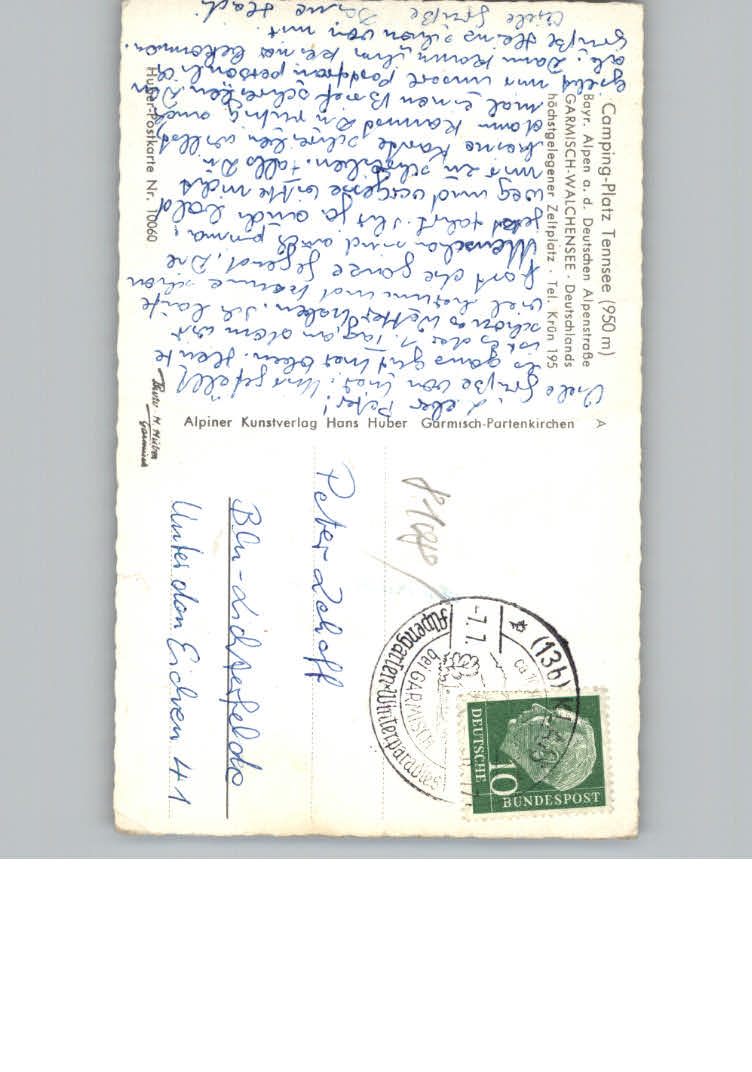 Camping-Platz Tennsee (950 m)
Bayr. Alpen a. d. Deutschen Alpenstraße
GARMISCH-WALCHENSEE · Deutschlands
höchstgelegener Zeltplatz · Tel. Krün 195
Lieber Peter!
Viele Grüße von hier. Uns gefällt
es ganz gut hier oben. Heute
ist es der 1. Tag, an dem wir
schönes Wetter haben. Ich laufe
viel herum und kenne schon
fast die ganze Gegend. Die
Menschen sind alle prima.
Jetzt fahrt Ihr ja auch bald
weg und vergesse bitte nicht
mir zu schreiben. Falls Du
keine Karte schreiben willst,
dann kannst Du ruhig auch
mal einen Brief schreiben. Du
gibst nur unsere Postfran persönlich
ab. Dann kann ihm keiner bekommen.
Grüße Heinz schön von mir.
Viele Grüße
Huber-Postkarte Nr. 10060
Photo-H. Huber
Garmisch
Alpiner Kunstverlag Hans Huber Garmisch-Partenkirchen
A
Peter
Bln-Lichterfelde
Unter den Eichen 41
(13b)
-7.7.
bei GARMISCH
Alpengarten-Winterparadies
DEUTSCHE
BUNDESPOST
10